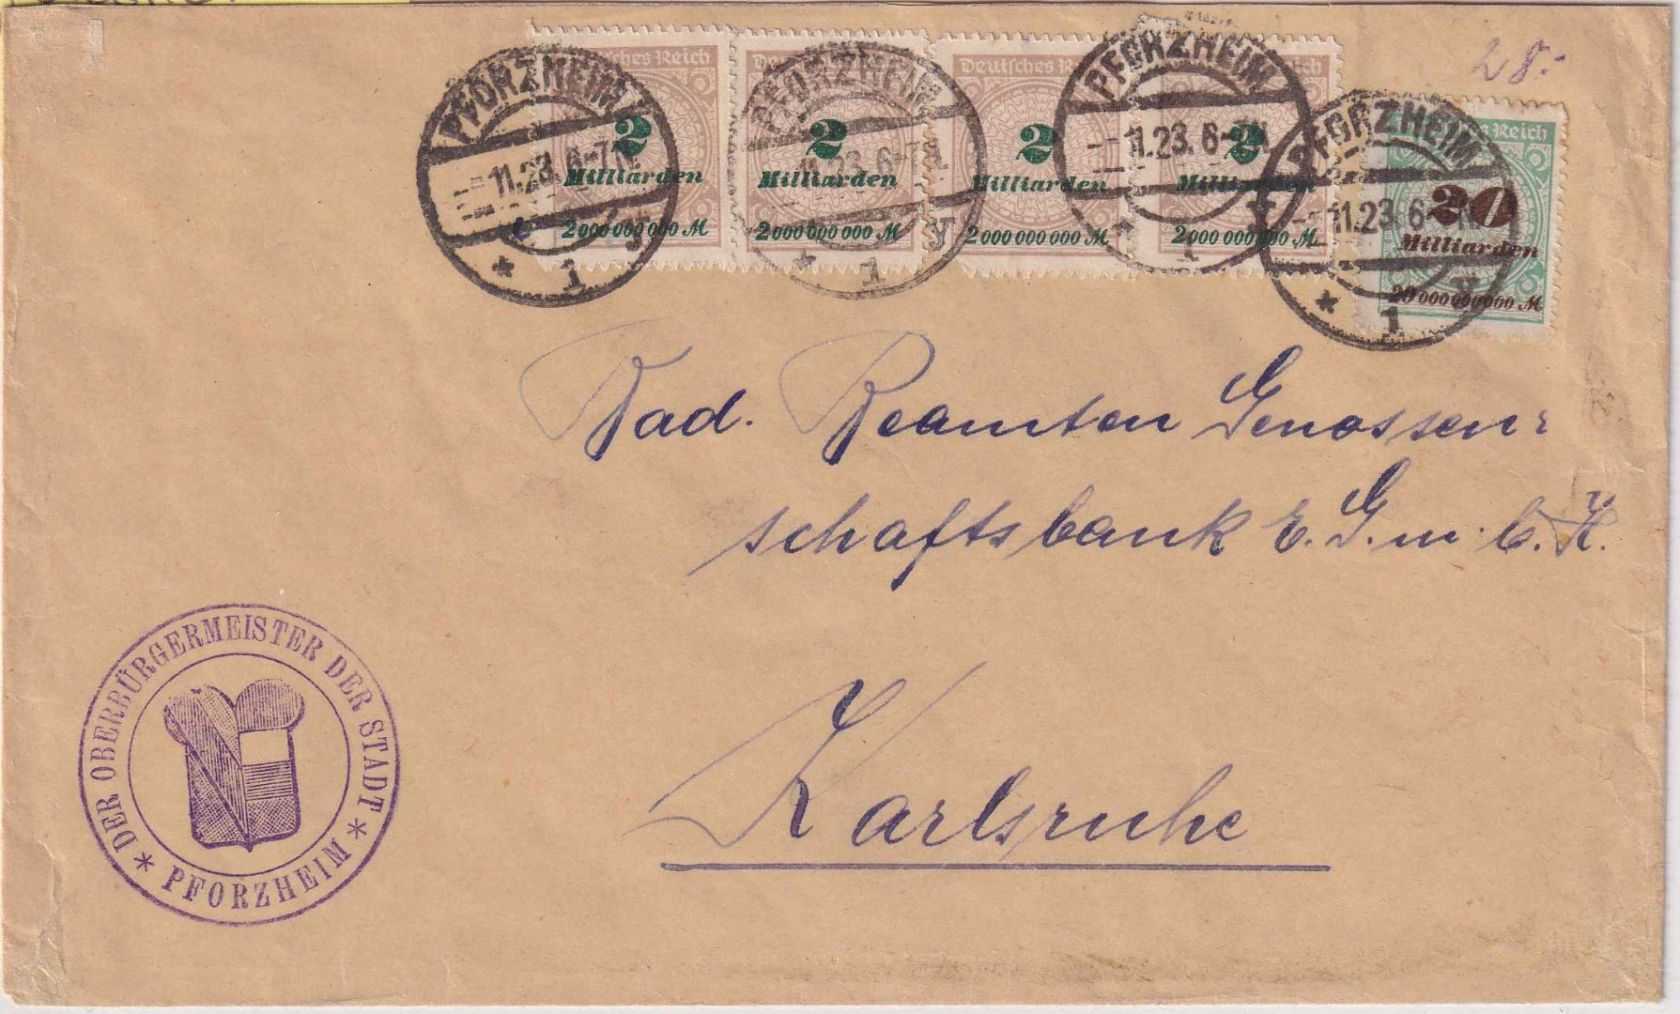 28.-
Deutsches Reich
2
Milliarden
2 000 000 000 M
2
Milliarden
2 000 000 000 M
Deutsches Reich
2
Milliarden
2 000 000 000 M
2
Milliarden
2 000 000 000 M
Reich
20
Milliarden
20 000 000 000 M
PFORZHEIM
11.23. 6-7 N.
* 1
PFORZHEIM
11.23. 6-7
* 1
PFORZHEIM
11.23. 6-7N.
1
PFORZHEIM
11.23. 6
* 1
Bad. Beamten Genossen-
schaftsbank E. G. m. b. H.
Karlsruhe
* DER OBERBÜRGERMEISTER DER STADT *
PFORZHEIM